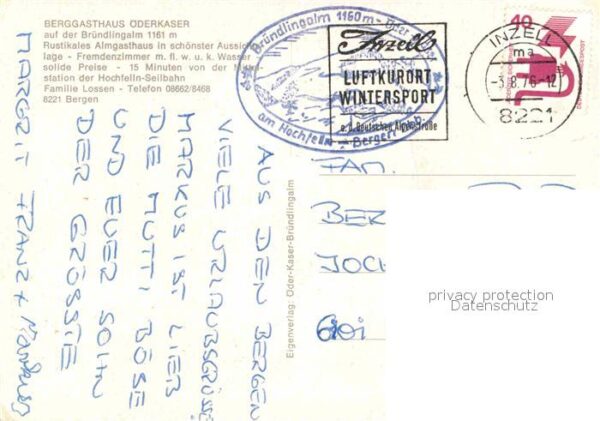 BERGGASTHAUS ODERKASER
auf der Bründlingalm 1161 m
Rustikales Almgasthaus in schönster Aussichts-
lage - Fremdenzimmer m. fl. w. u. k. Wasser
solide Preise - 15 Minuten von der
station der Hochfelln-Seilbahn
Familie Lossen - Telefon 08662/8468
8221 Bergen
Bründlingalm 1160 m -
am Hochfelln - Bergen
Inzell
LUFTKURORT
WINTERSPORT
a. d. Deutschen Alpenstraße
INZELL 1
ma
-3.8.76-12
8221
40
AUS DEN BERGEN
VIELE URLAUBSGRÜSSE
MARKUS IST LIEB
DIE MUTTI BÖSE
UND EUER SOHN
DER GRÖSSTE
MARGRIT FRANZ + Markus
Eigenverlag: Oder-Kaser-Bründlingalm
FAM.
BER
JOCH
privacy protection
Datenschutz